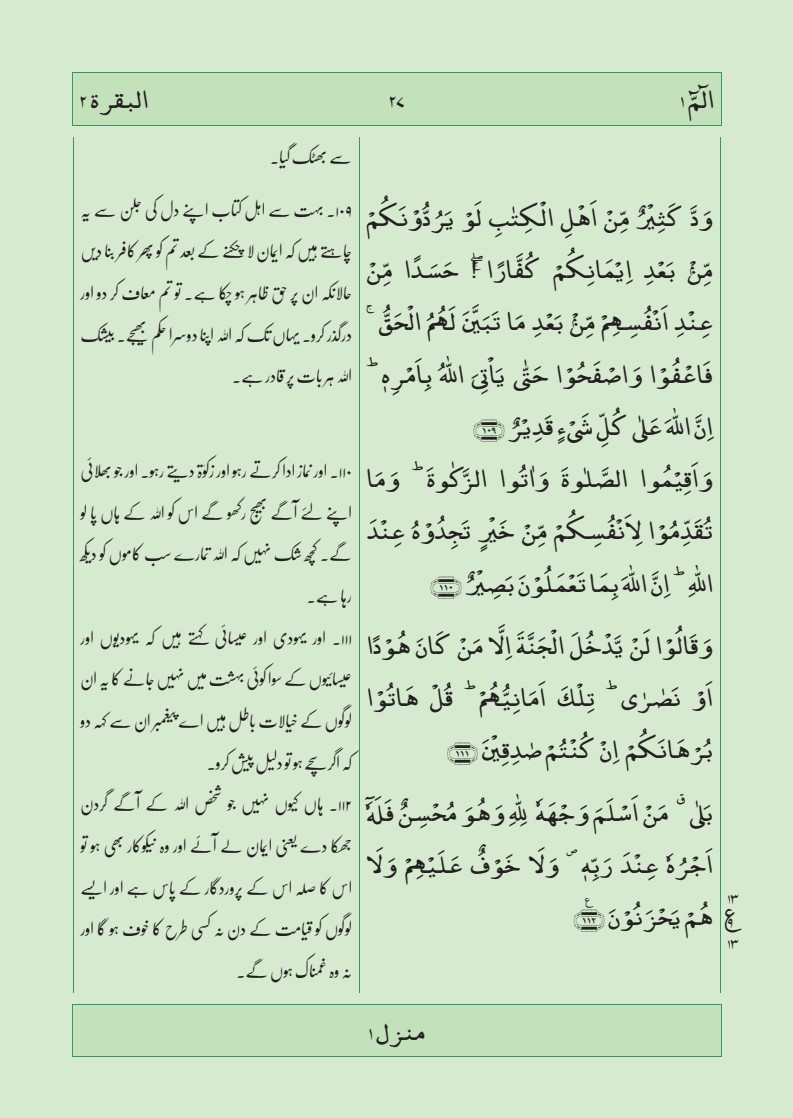 الٓمّٓ ۱
۲۷
البقرة ۲
وَدَّ كَثِيْرٌ مِّنْ اَهْلِ الْكِتٰبِ لَوْ يَرُدُّوْنَكُمْ
مِّنْۢ بَعْدِ اِيْمَانِكُمْ كُفَّارًا ۖۚ حَسَدًا مِّنْ
عِنْدِ اَنْفُسِهِمْ مِّنْۢ بَعْدِ مَا تَبَيَّنَ لَهُمُ الْحَقُّ ۚ
فَاعْفُوْا وَاصْفَحُوْا حَتّٰى يَاْتِيَ اللّٰهُ بِاَمْرِهٖ ؕ
اِنَّ اللّٰهَ عَلٰى كُلِّ شَيْءٍ قَدِيْرٌ ۱۰۹
وَاَقِيْمُوا الصَّلٰوةَ وَاٰتُوا الزَّكٰوةَ ؕ وَمَا
تُقَدِّمُوْا لِاَنْفُسِكُمْ مِّنْ خَيْرٍ تَجِدُوْهُ عِنْدَ
اللّٰهِ ؕ اِنَّ اللّٰهَ بِمَا تَعْمَلُوْنَ بَصِيْرٌ ۱۱۰
وَقَالُوْا لَنْ يَّدْخُلَ الْجَنَّةَ اِلَّا مَنْ كَانَ هُوْدًا
اَوْ نَصٰرٰى ؕ تِلْكَ اَمَانِيُّهُمْ ؕ قُلْ هَاتُوْا
بُرْهَانَكُمْ اِنْ كُنْتُمْ صٰدِقِيْنَ ۱۱۱
بَلٰى ۗ مَنْ اَسْلَمَ وَجْهَهٗ لِلّٰهِ وَهُوَ مُحْسِنٌ فَلَهٗٓ
اَجْرُهٗ عِنْدَ رَبِّهٖ ۪ وَلَا خَوْفٌ عَلَيْهِمْ وَلَا
هُمْ يَحْزَنُوْنَ ۱۱۲ ع
۱۳
ع
۱۳
سے بھٹک گیا۔
۱۰۹۔ بہت سے اہل کتاب اپنے دل کی جلن سے یہ
چاہتے ہیں کہ ایمان لا چکنے کے بعد تم کو پھر کافر بنا دیں
حالانکہ ان پر حق ظاہر ہو چکا ہے۔ تو تم معاف کر دو اور
درگذر کرو۔ یہاں تک کہ اللہ اپنا دوسرا حکم بھیجے۔ بیشک
اللہ ہر بات پر قادر ہے۔
۱۱۰۔ اور نماز ادا کرتے رہو اور زکوٰۃ دیتے رہو۔ اور جو بھلائی
اپنے لئے آگے بھیج رکھو گے اس کو اللہ کے ہاں پا لو
گے۔ کچھ شک نہیں کہ اللہ تمہارے سب کاموں کو دیکھ
رہا ہے۔
۱۱۱۔ اور یہودی اور عیسائی کہتے ہیں کہ یہودیوں اور
عیسائیوں کے سوا کوئی بہشت میں نہیں جانے کا یہ ان
لوگوں کے خیالات باطل ہیں اے پیغمبر ان سے کہہ دو
کہ اگر سچے ہو تو دلیل پیش کرو۔
۱۱۲۔ ہاں کیوں نہیں جو شخص اللہ کے آگے گردن
جھکا دے یعنی ایمان لے آئے اور وہ نیکوکار بھی ہو تو
اس کا صلہ اس کے پروردگار کے پاس ہے اور ایسے
لوگوں کو قیامت کے دن نہ کسی طرح کا خوف ہو گا اور
نہ وہ غمناک ہوں گے۔
منزل ۱